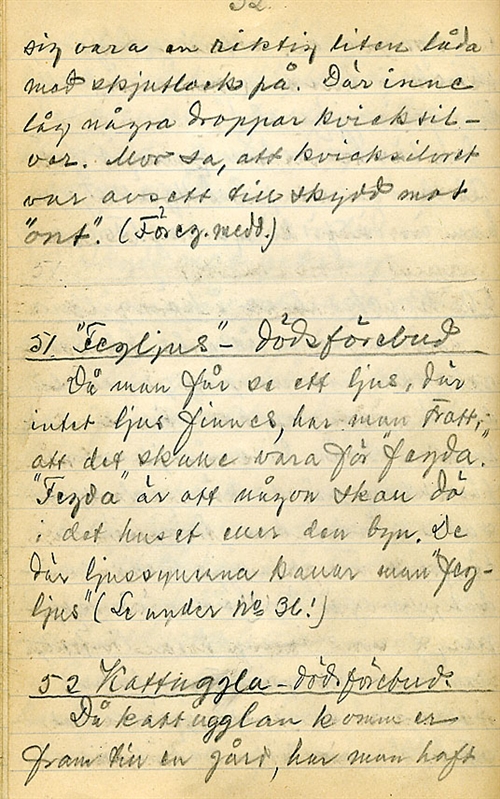 32.
sig vara en riktig liten låda
med skjutlock på. Där inne
låg några droppar kvicksil-
ver. Mor sa, att kvicksilvret
var avsett till skydd mot
"ont". (Föreg. medd.)
51. "Fegljus" - dödsförebud
Då man får se ett ljus, där
intet ljus finnes, har man trott,
att det skulle vara för "fegda".
"Fegda" är att någon skall dö
i det huset eller den byn. De
där ljussynerna kallar man "feg-
ljus" (Se under No 36!)
52 Kattuggla - dödsförebud.
Då kattugglan kommer
fram till en gård, har man haft